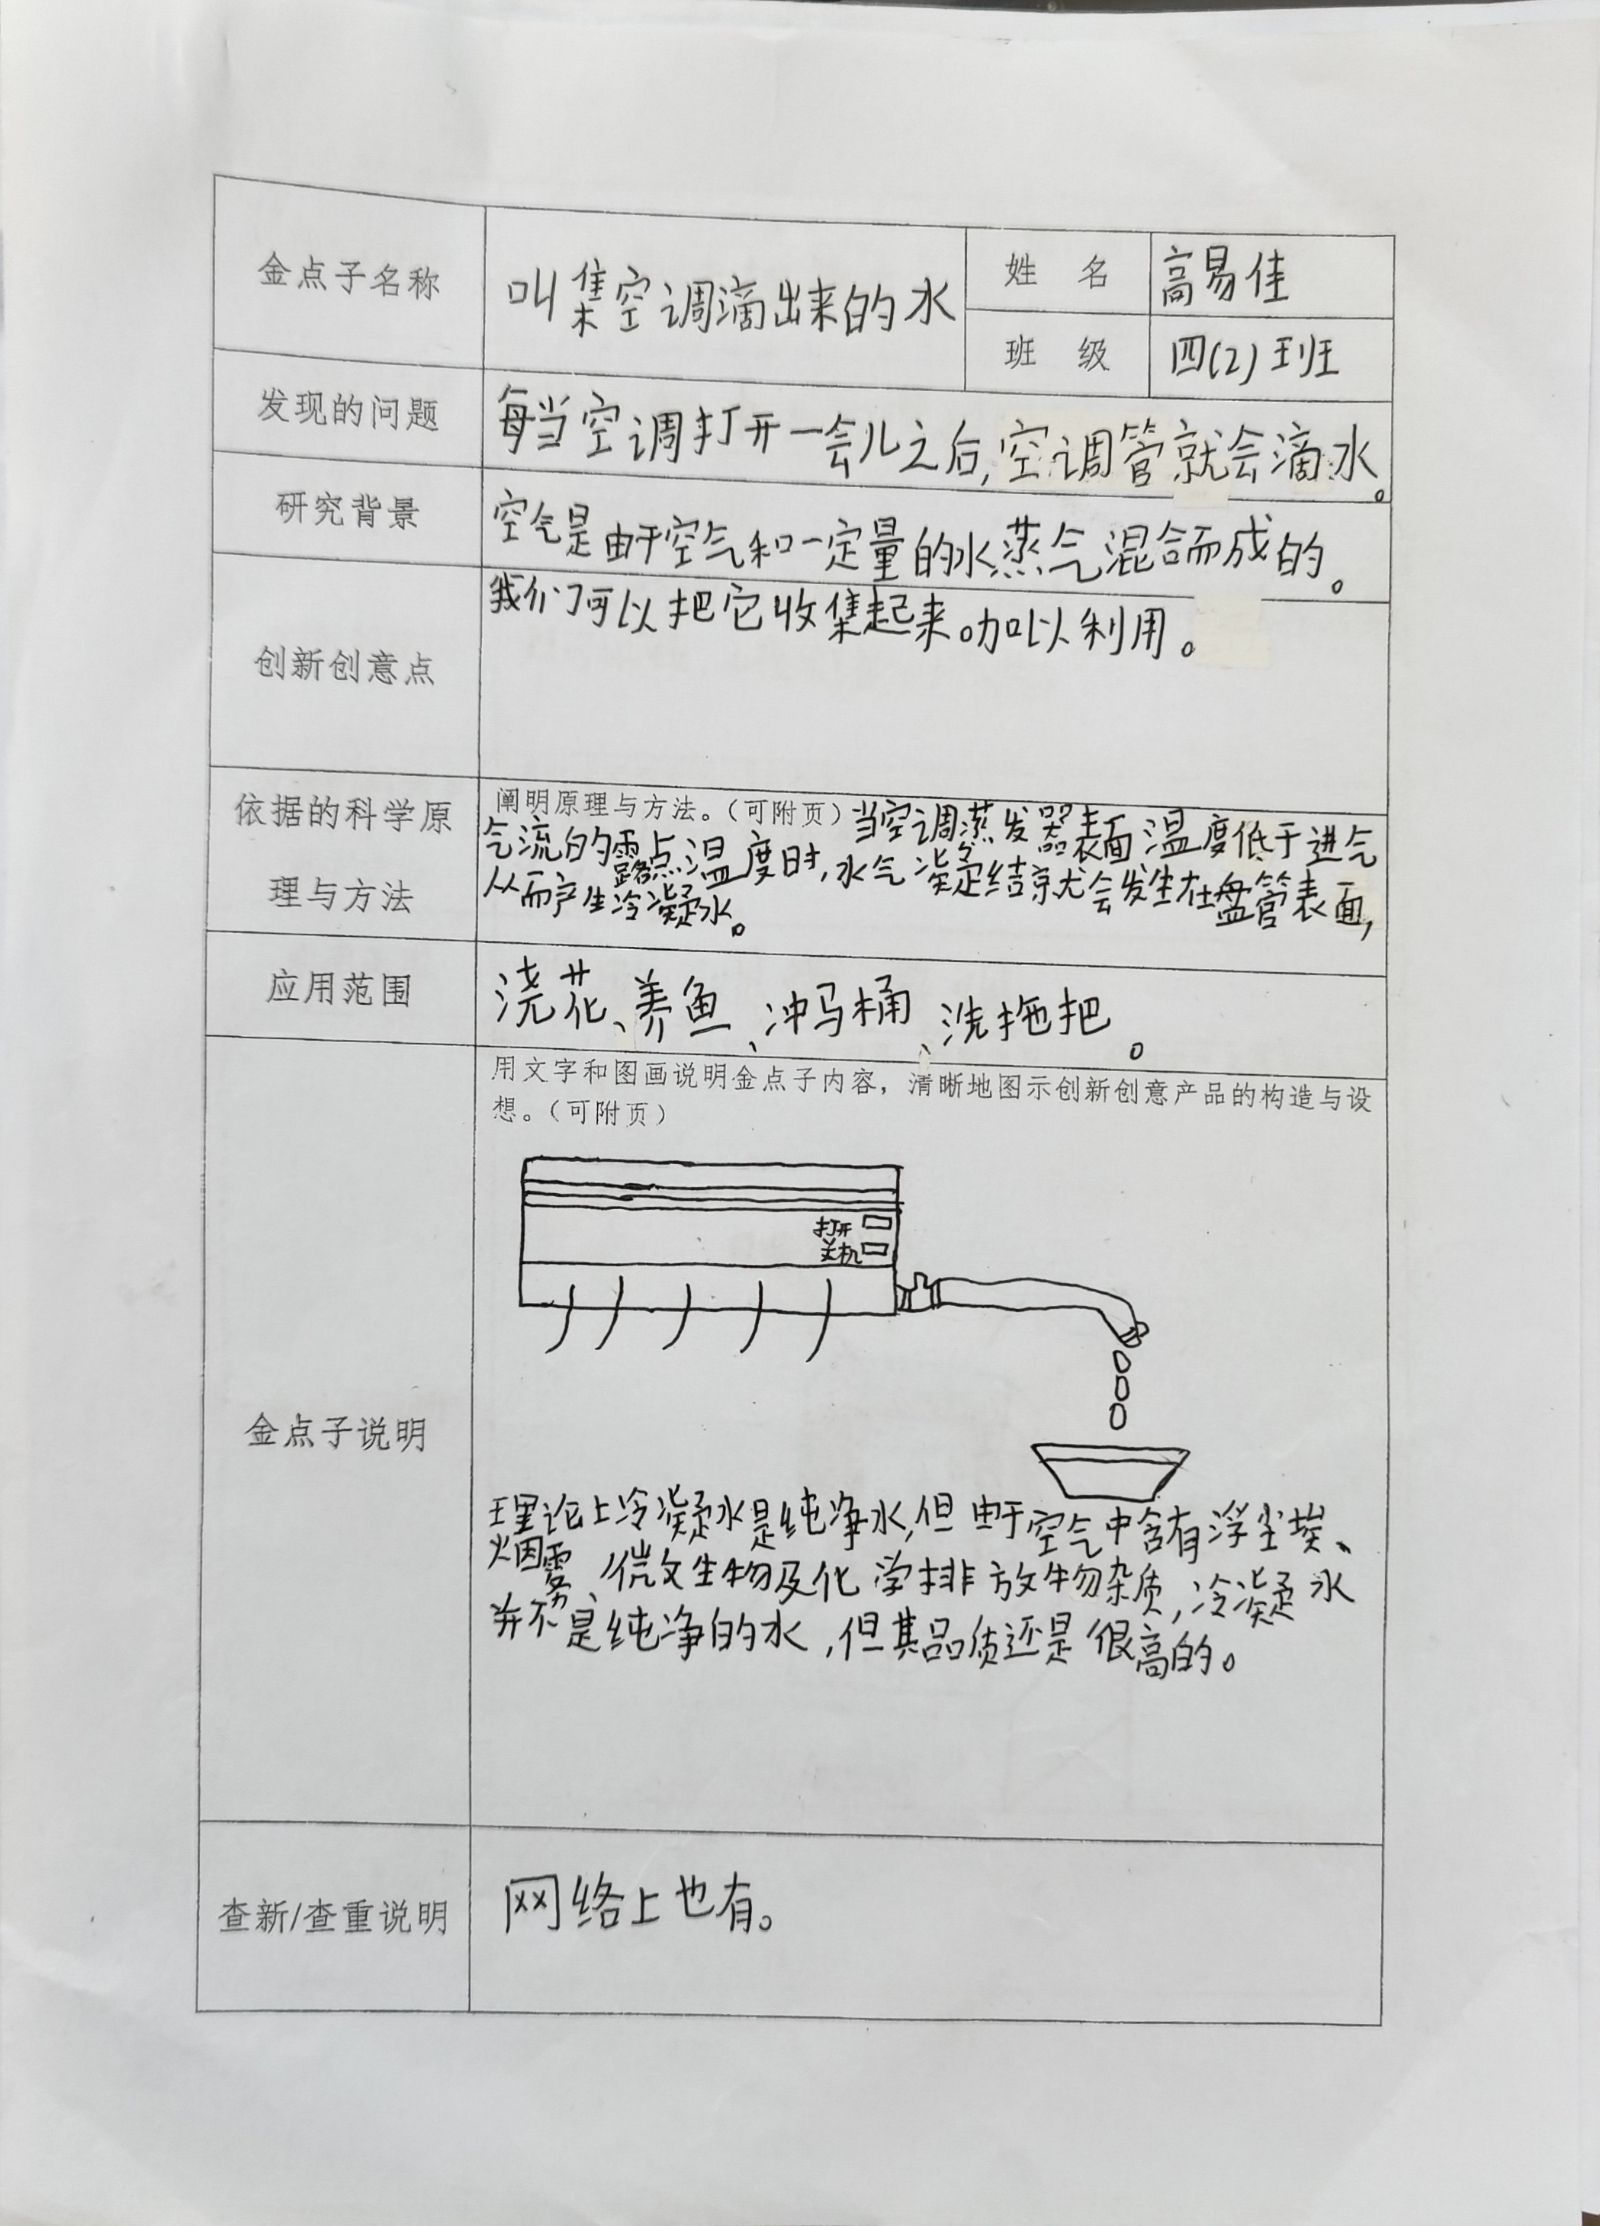 金点子名称
叫集空调滴出来的水
姓 名
高易佳
班 级
四(2)班
发现的问题
每当空调打开一会儿之后,空调管就会滴水。
研究背景
空气是由于空气和一定量的水蒸气混合而成的。
创新创意点
我们可以把它收集起来。加以利用。
依据的科学原
理与方法
阐明原理与方法。(可附页)当空调蒸发器表面温度低于进气
气流的露点温度时,水气凝结就会发生在盘管表面,
从而产生冷凝水。
应用范围
浇花、养鱼、冲马桶、洗拖把。
金点子说明
用文字和图画说明金点子内容,清晰地图示创新创意产品的构造与设
想。(可附页)
打开
关机
理论上冷凝水是纯净水,但由于空气中含有浮尘埃、
烟雾、微生物及化学排放物杂质,冷凝水
并不是纯净的水,但其品质还是很高的。
查新/查重说明
网络上也有。